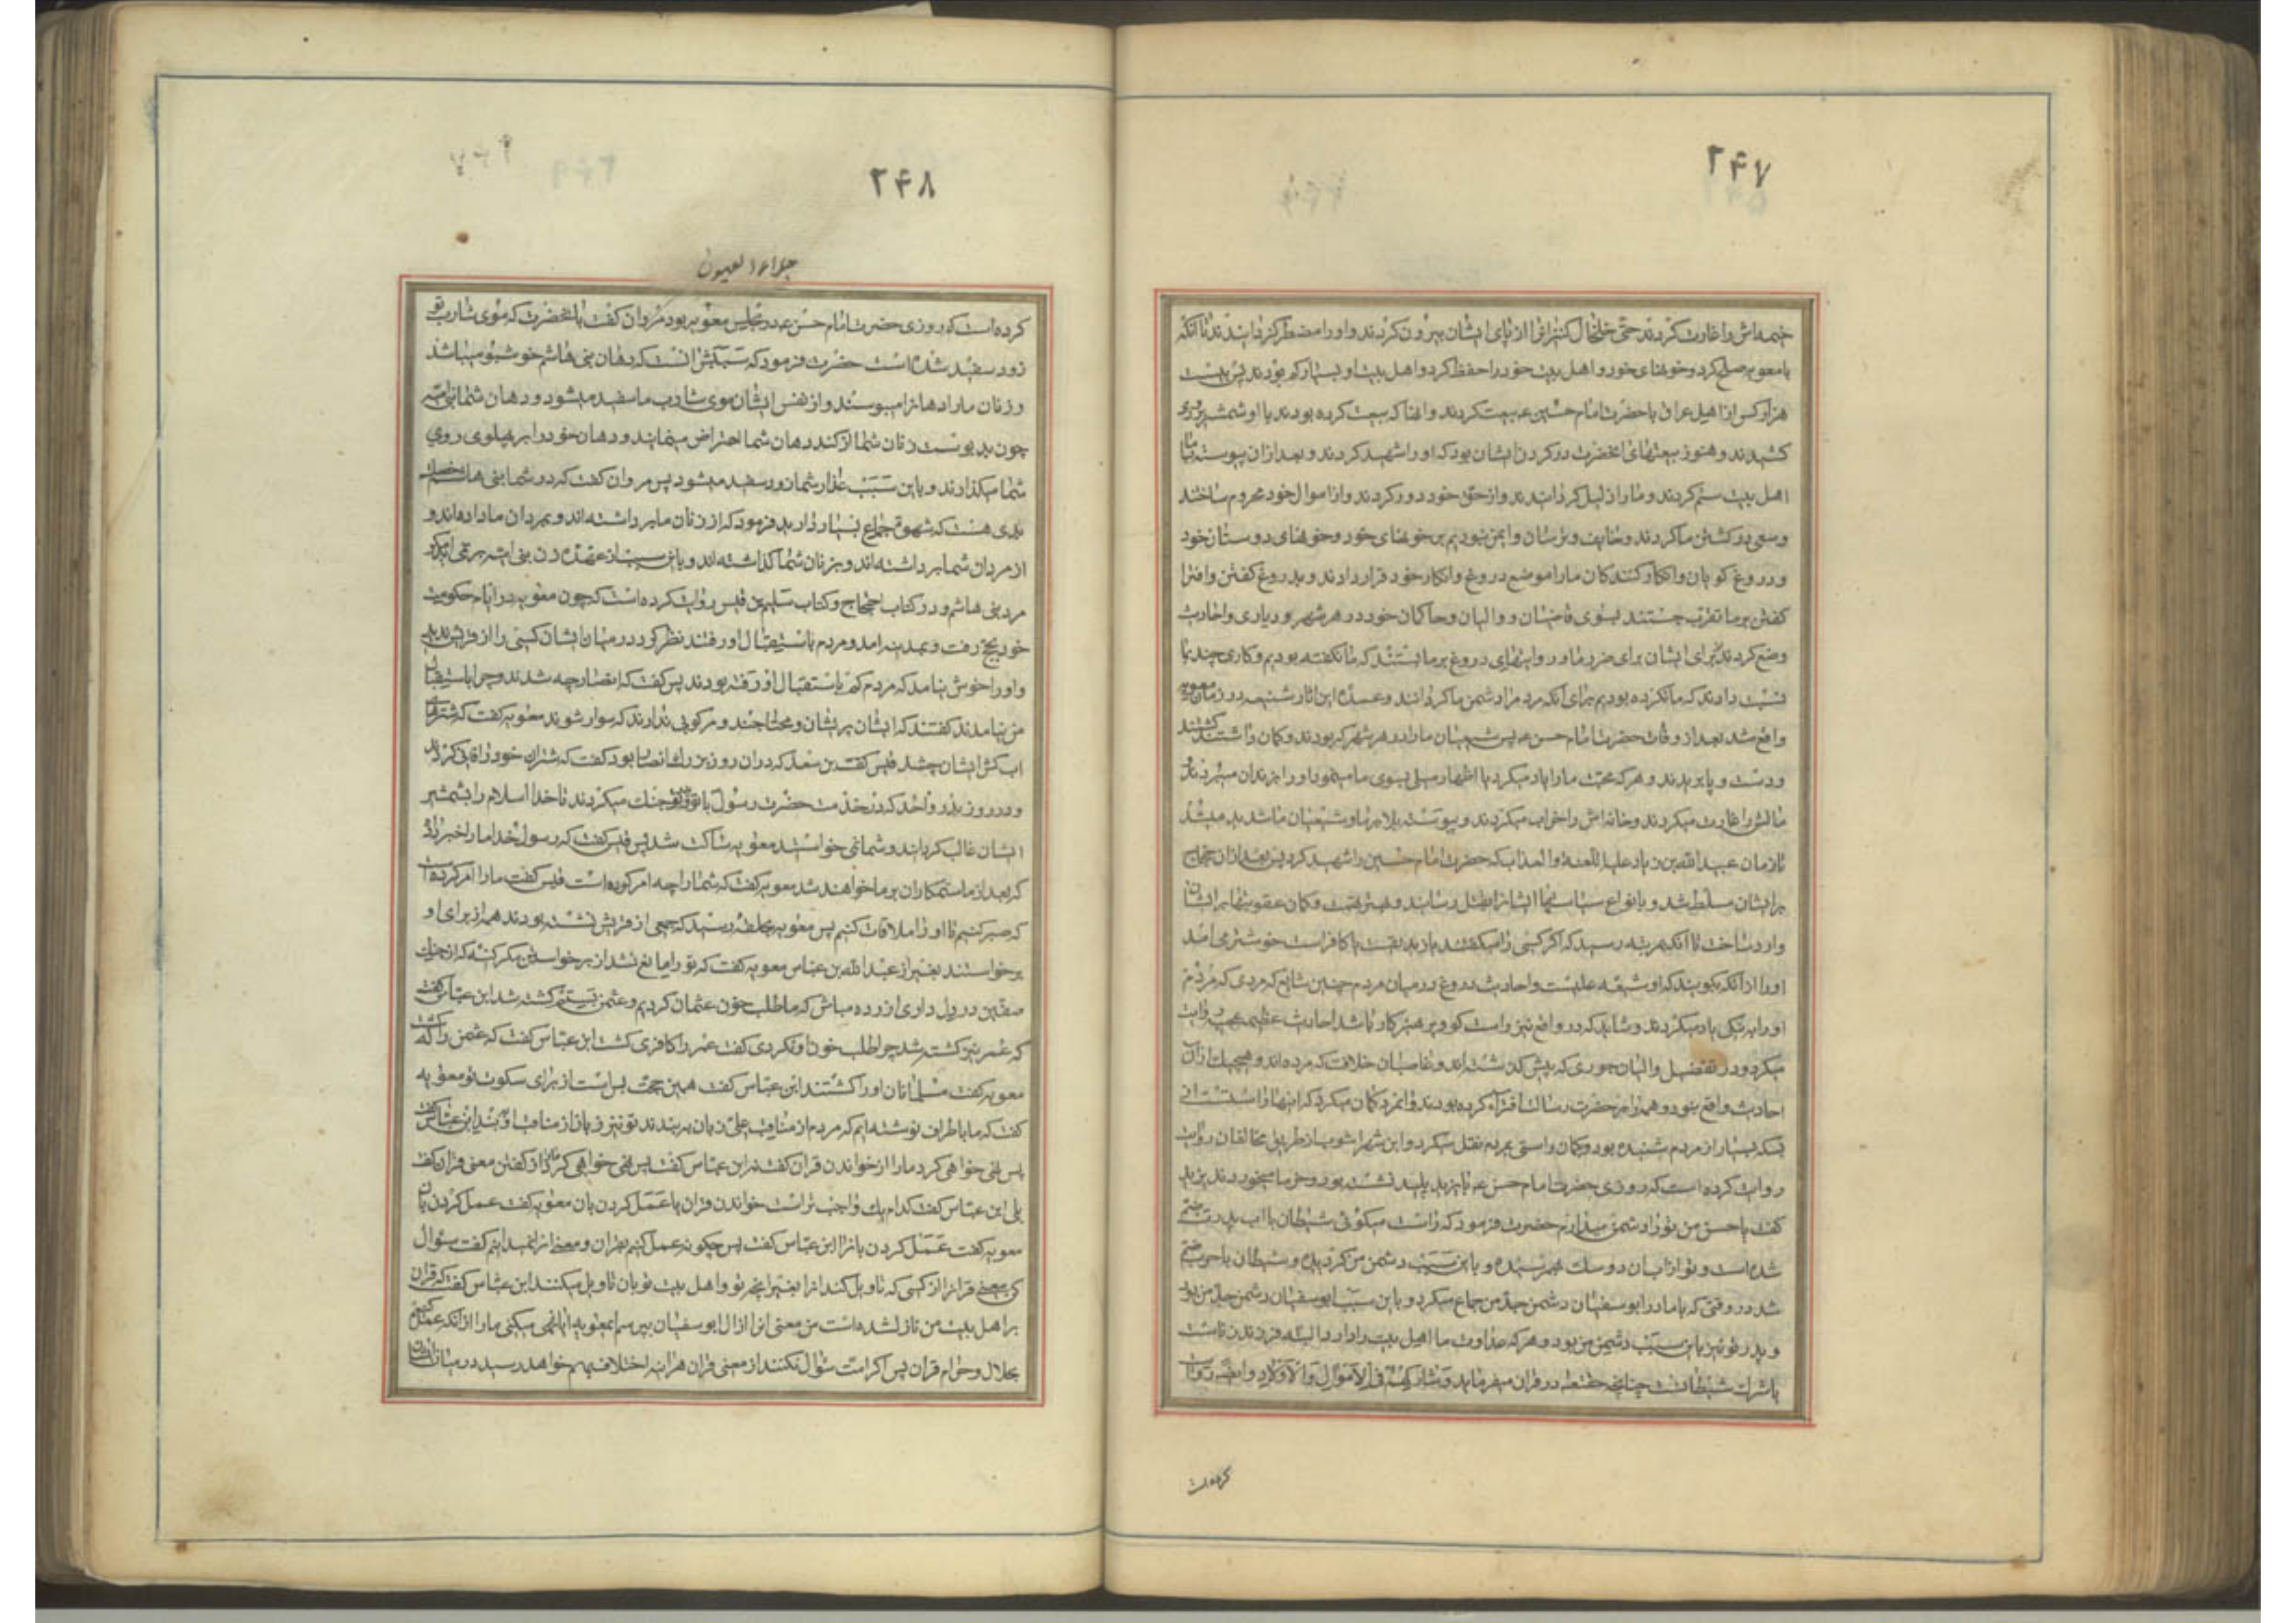 ۲۴۷
خیمه‌اش را غارت کردند حتی خلخال کنیزانرا از پای ایشان بیرون کردند و او را مضطر کردانیدند تا آنکه
با معویه صلح کرد و خونهای خود و اهل بیت خود را حفظ کرد و اهل بیت او بسیار کم بودند پس بیست
هزار کس از اهل عراق با حضرت امام حسین ع بیعت کردند و آنها که بیعت کرده بودند با او شمشیر بر روی او
کشیدند و هنوز بیعتهای آنحضرت در کردن ایشان بود که او را شهید کردند و بعد از ان پیوسته با ما
اهل بیت ستم کردند و ما را ذلیل کردانیدند و از حق خود دور کردند و از اموال خود محروم ساختند
و سعی در کشتن ما کردند و خایف و ترسان و ایمن نبودیم بر خونهای خود و خونهای دوستان خود
و دروغ کویان و انکار کنندکان ما را موضع دروغ و انکار خود قرار دادند و بدروغ کفتن و افترا
کفتن بر ما تقرب جستند بسوی قاضیان و والیان و حاکمان خود در هر شهر و دیاری و احادیث
وضع کردند برای ایشان برای ضرر ما و روایتهای دروغ بر ما بستند که ما نکفته بودیم و کاری چند بما
نسبت دادند که ما نکرده بودیم برای آنکه مردم را دشمن ما کردانند و عمده این اثار شنیعه در زمان معویه
واقع شد بعد از وفات حضرت امام حسن ع پس شیعیان ما را در هر شهر که بودند و کمان داشتند کشتند
و دست و پا بریدند و هر که محبت ما را یاد میکرد یا اظهار میلی بسوی ما مینمود او را بزندان میبردند
مالش را غارت میکردند و خانه‌اش را خراب میکردند و پیوسته بلا بر ما و شیعیان ما شدید میشد
تا زمان عبید الله بن زیاد علیه اللعنة و العذاب که حضرت امام حسین را شهید کرد پس بعد از ان حجاج
بر ایشان مسلط شد و بانواع سیاستها ایشانرا بقتل رسانید و بهر تهمت و کمان عقوبتها بر ایشان
وارد ساخت تا آنکه بمرتبه رسید که اکر کسی را میکفتند که زندیقست یا کافر است خوشتر می آمد
او را از آنکه بکویند که او شیعه علیست و احادیث دروغ در میان مردم چنین شایع که مردی که مردم
او را به نیکی یاد میکردند و شاید که در واقع نیز راست کو و پرهیزکار باشد احادیث عظیمه عجیبه روایت
میکرد در تفضیل والیان جوری که پیش کذشته‌اند و غاصبان خلافت که مرده‌اند و هیچیک از ان
احادیث واقع نبود و همه را بر حضرت رسالت افترا کرده بودند و آنمرد کمان میکرد که اینها راستست از
بسکه بسیار از مردم شنیده بود و کمان راستی بمردم نقل میکرد و ابن شهر اشوب از طریق مخالفان روایت
روایت کرده است که روزی حضرت امام حسن ع با یزید پلید نشسته بود و خرما میخوردند یزید
کفت یا حسن من تو را دشمن میدارم حضرت فرمود که راست میکوئی شیطان با اب پدرت ضم
شده است و تو از ابان دو سک بهم رسیدهٔ و باین سبب دشمن من کردیدهٔ و شیطان با حرب ضم
شد در وقتی که با مادر ابو سفیان دشمن جد من جماع میکرد و باین سبب ابو سفیان دشمن جد من بود
و پدر تو نیز باین سبب دشمن من بود و هر که عداوت ما اهل بیت را دارد البته فرزند زناست
یا شرک شیطانست چنانچه حقتعالی در قران میفرماید وَشَارِکْهُمْ فِی الْاَمْوَالِ وَالْاَوْلَادِ و ایضا روایت
کرده است
۲۴۸
جلاء العیون
کرده است که روزی حضرت امام حسن ع در مجلس معویه بود مروان کفت با آنحضرت که موی شارب تو
زود سفید شده است حضرت فرمود که سببش آنست که دهان بنی هاشم خوشبو میباشد
و زنان ما را دهانرا میبوسند و از نفس ایشان موی شارب ما سفید میشود و دهان شما بنی امیه
چون بدبوست زنان شما از کند دهان شما احتراض مینمایند و دهان خود را بر پهلوی روی
شما میکذارند و باین سبب عذار شما زود سفید میشود پس مروان کفت که در شما بنی هاشم خصلت
بدی هست که شهوت جماع بسیار دارید فرمود که از زنان ما برداشته‌اند و بمردان ما داده‌اند و
از مردان شما برداشته‌اند و بر زنان شما کذاشته‌اند و باین سبب از عهدهٔ زن بنی امیه بر نمی‌آید مکر
مرد بنی هاشم و در کتاب احتجاج و کتاب سلیم بن قیس روایت کرده است که چون معویه در ایام حکومت
خود بحج رفت و بمدینه آمد و مردم باستقبال او رفتند نظر کرد در میان ایشان کسی را از قریش ندید
و او را خوش نیامد که مردم کم باستقبال او رفته بودند پس کفت که انصار چه شدند و چرا باستقبال
من نیامدند کفتند که ایشان پریشان و محتاجند و مرکوبی ندارند که سوار شوند معویه کفت که شترهای
اب کش ایشان چه شد قیس کفت بن سعد که دران روز بزرک انصار بود کفت که شتران خود را فانی کردند
و در روز بدر و احد که در خدمت حضرت رسول با تو و پدر تو جنک میکردند تا خدا اسلام را بشمشیر
ایشان غالب کردانید و شما نمی خواستید معویه ساکت شد پس قیس کفت که رسول خدا ما را خبر داد
که بعد از ما ستمکاران بر ما خواهند شد معویه کفت که شما را چه امر کرده است قیس کفت ما را امر کرده است
که صبر کنیم تا او را ملاقات کنیم پس معویه بحلقهٔ رسید که جمعی از قریش نشسته بودند همه از برای او
برخواستند بغیر از عبد الله بن عباس معویه کفت که تو را مانع نشد از برخواستن مکر کینه که از جنک
صفین در دل داری ازرده مباش که ما طلب خون عثمان کردیم و عثمن بستم کشته شد ابن عباس کفت
که عمر نیز کشته شد چرا طلب خون او نکردی کفت عمر را کافری کشت ابن عباس کفت که عثمن را که کشت
معویه کفت مسلمانان او را کشتند ابن عباس کفت همین حجت بس است از برای سکوت تو معویه
کفت که ما باطراف نوشته‌ایم که مردم از مناقب علی زبان به بندند تو نیز زبان از مناقب او به بند ابن عباس کفت
پس نهی خواهی کرد ما را از خواندن قران کفت نه ابن عباس کفت پس نهی خواهی کرد ما را از کفتن معنی قران کفت
بلی ابن عباس کفت کدام یک واجب تر است خواندن قران یا عمل کردن بان معویه کفت عمل کردن بان
معویه کفت عمل کردن بانرا ابن عباس کفت پس چکونه عمل کنیم بقران و معنی انرا ندانیم کفت سؤال
کن معنی قرانرا از کسی که تاویل کند انرا بغیر انچه تو و اهل بیت تو بان تاویل میکنند ابن عباس کفت که قران
بر اهل بیت من نازل شده است من معنی انرا از آل ابو سفیان بپرسم ای معویه ایا نهی میکنی ما را از آنکه عمل کنیم
بحلال و حرام قران پس اکر امت سؤال نکنند از معنی قران هر اینه اختلاف بهم خواهد رسید در میان ایشان